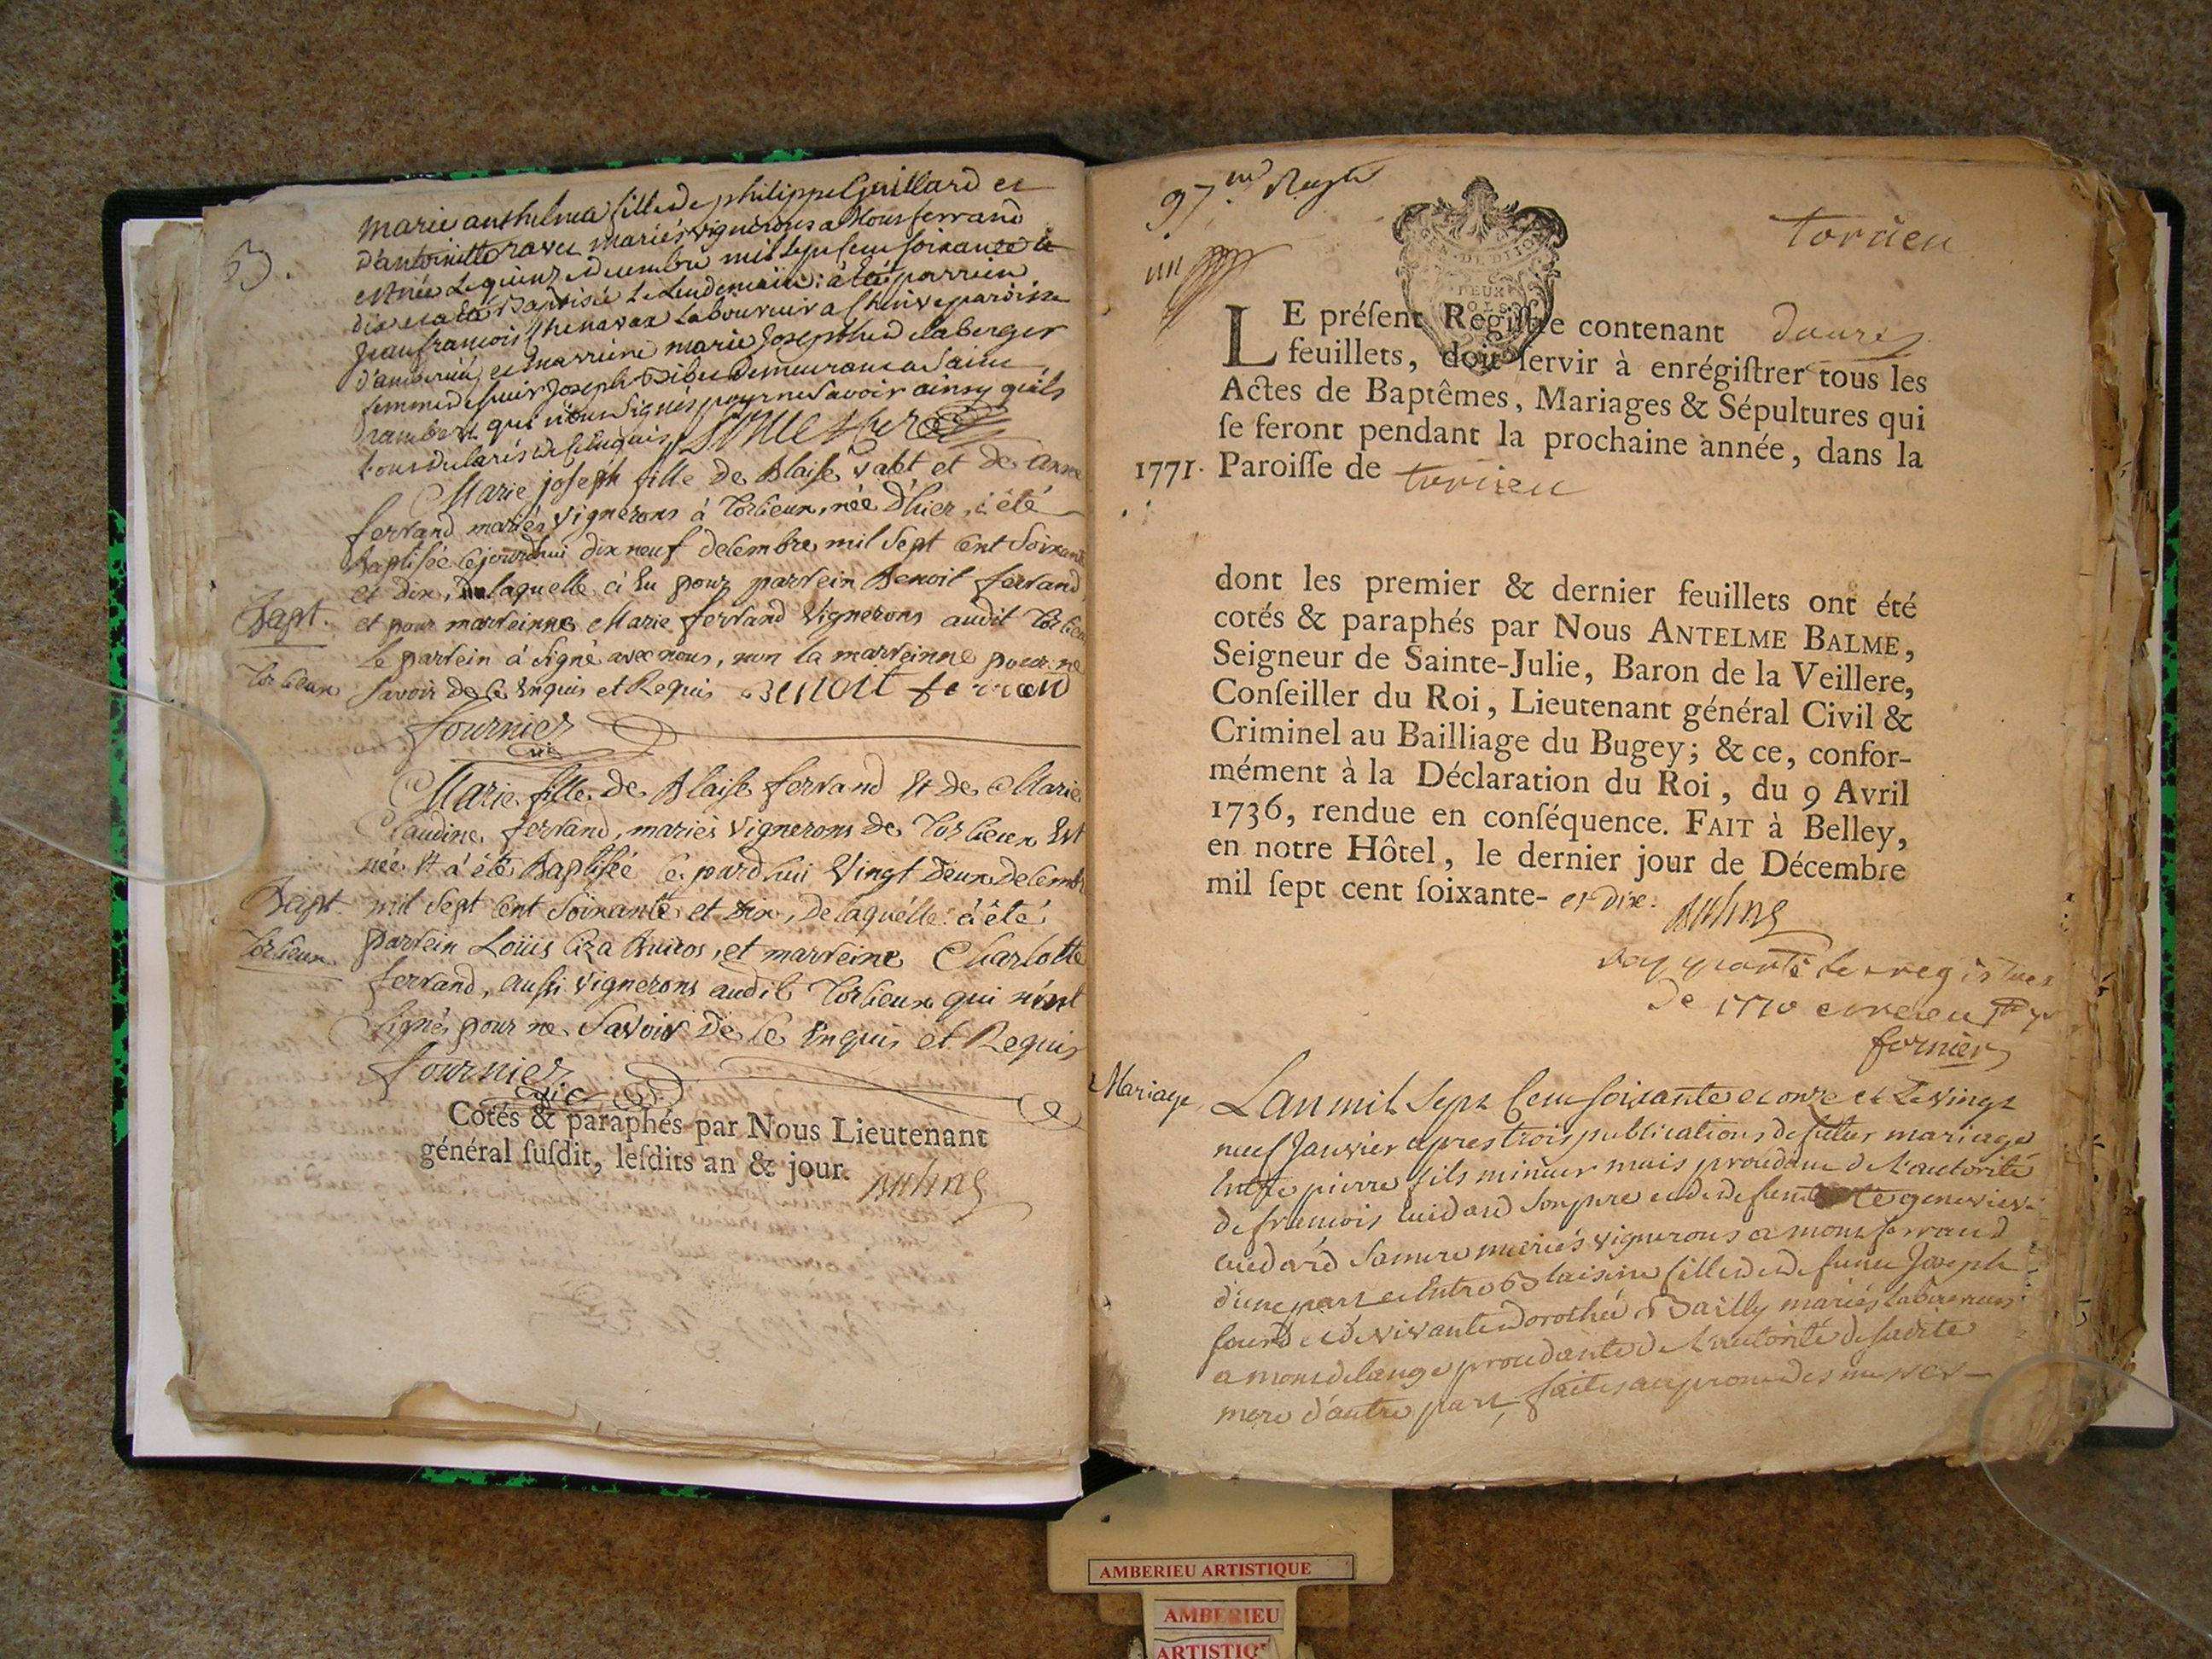 B.
marie anthelmea fille de philippe Gaillard et
d'antoinette ravet mariés vignerons a Monferrand
est née le quinze decembre mil sept cent soixante et
dix et a eté Baptisée le lendemain: a eté parrien
Jean francois Chenavax Laboureur a Chenive paroisse
d'amberieu, et marriene marie Josephte delaberger
femme de sieur Joseph demeurant a Saint
rambert qui n'ont signés pour ne savoir ainsy qu'ils
l'ont declarés de ce enquis
Marie joseph fille de Blaise valet et de Anne
ferrand mariés vignerons à Torcieux, née d'hier, à été
baptisée cejourdhui dix neuf decembre mil Sept Cent Soixante
et dix, de laquelle à Eu pour parrein Benoit ferrand,
Bapt. et pour marreinne Marie ferrand Vignerons audit Torcieu
le parrein à signé avec nous, non la marreinne pour ne
Torcieux Savoir de ce Enquis et Requis Benoit ferrand
fournier
vic
Marie fille de Blaise ferrand Et de Marie
Claudine ferrand, mariés vignerons de Torcieux Est
née Et à été Baptisée ce jourdhui Vingt deux decembre
Bapt. mil Sept Cent Soixante et dix, de laquelle à été
Torcieux parrein Loüis et marreine Charlotte
ferrand, aussi vignerons audit Torcieux qui n'ont
signés pour ne Savoir de ce Enquis et Requis
fournier
vic
Cotés & paraphés par Nous Lieutenant
général susdit, lesdits an & jour. Balme
97.me Regtre
torcieu
GEN. DE DIJON
DEUX
SOLS
LE présent Registre contenant douze
feuillets, doit servir à enrégistrer tous les
Actes de Baptêmes, Mariages & Sépultures qui
se feront pendant la prochaine année, dans la
1771. Paroisse de torcieu
dont les premier & dernier feuillets ont été
cotés & paraphés par Nous ANTELME BALME,
Seigneur de Sainte-Julie, Baron de la Veillere,
Conseiller du Roi, Lieutenant général Civil &
Criminel au Bailliage du Bugey; & ce, confor-
mément à la Déclaration du Roi, du 9 Avril
1736, rendue en conséquence. FAIT à Belley,
en notre Hôtel, le dernier jour de Décembre
mil sept cent soixante- et dix. Balme
raporté le registre
de 1770
fornier
Mariage L'an mil Sept Cent soixante et onze et le vingt
neuf Janvier apres trois publications de futur mariage
Entre pierre fils mineur mais procedant de l'autorité
de francois Cuidard son pere et de defunte genevieve
Cuedard sa mere mariés vignerons a monferrand
d'une part et Entre Blaisine fille de defunt Joseph
fournd et de vivante dorothée Bailly mariés Laboureurs
a mondelange procedante de l'autorité de sadite
mere d'autre part, faites au prone des messes
AMBERIEU ARTISTIQUE
AMBERIEU
ARTISTIQ